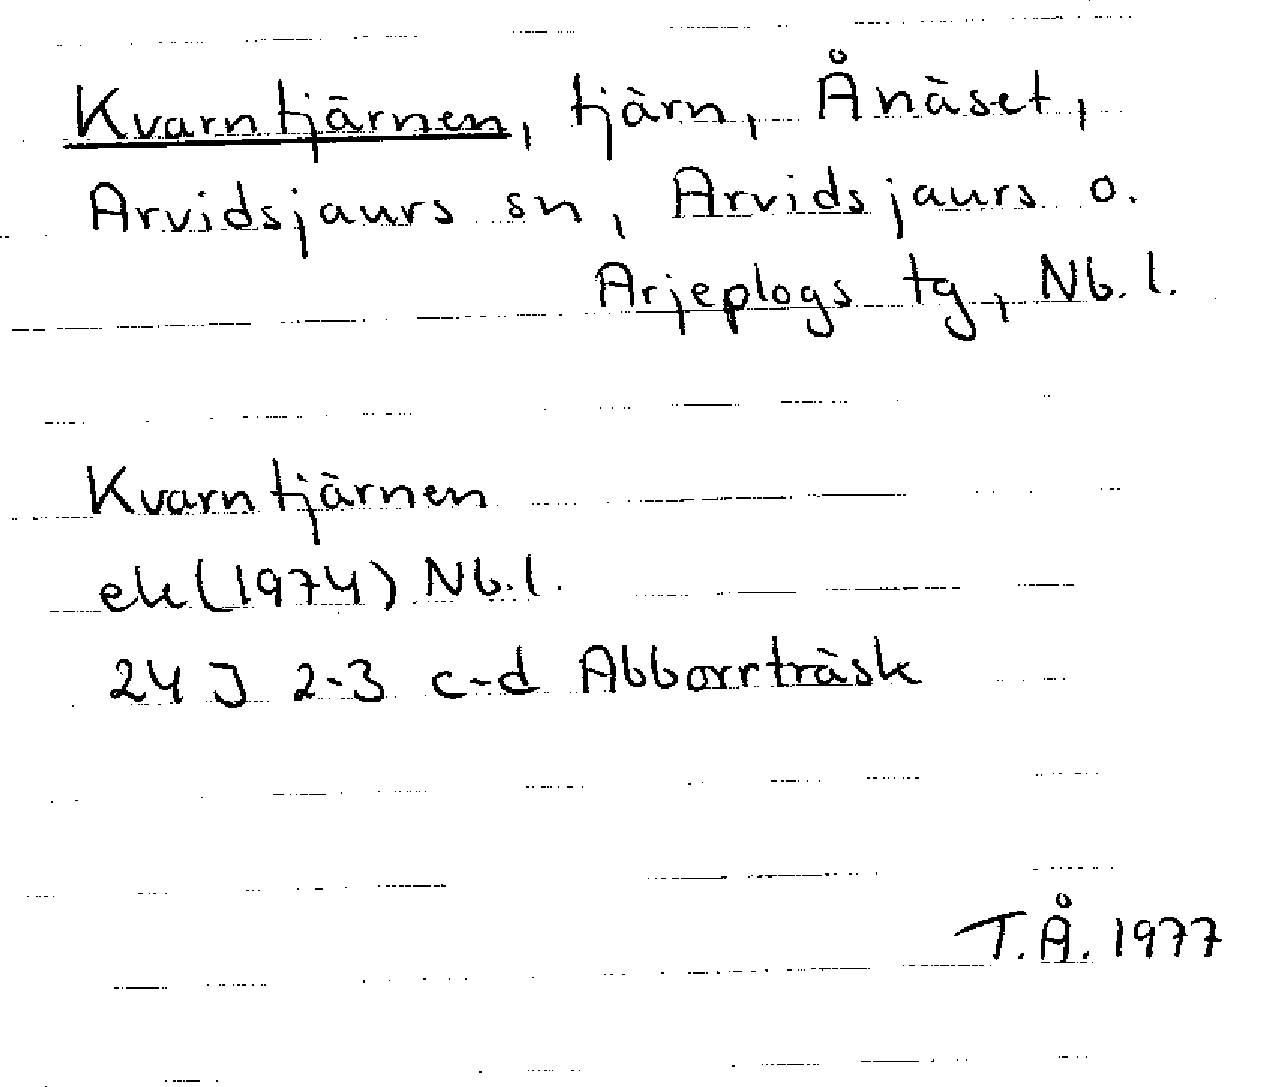 Kvarntjärnen, tjärn, Ånäset,
Arvidsjaurs sn, Arvidsjaurs o.
Arjeplogs tg, Nb. l.
Kvarntjärnen
ek (1974) Nb. l.
24 J 2-3 c-d Abborrträsk
T.Å. 1977